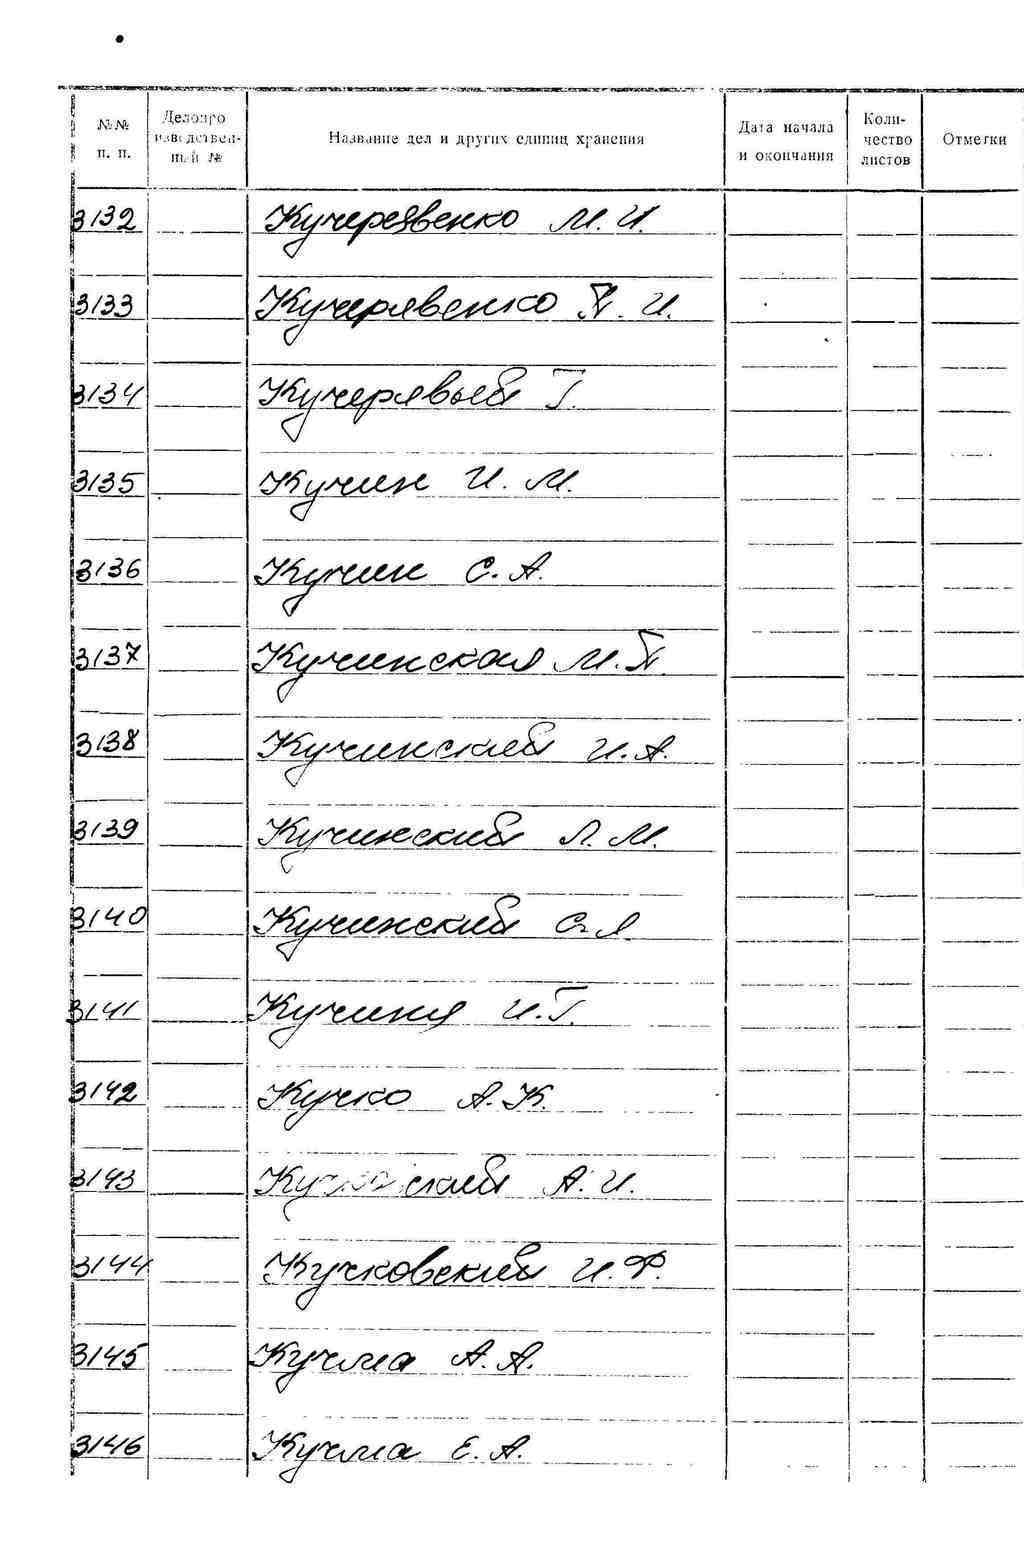 №№ п. п.
Делопроизводственный №
Название дел и других единиц хранения
Дата начала и окончания
Количество листов
Отметки
3132 Кучерявенко М. И.
3133 Кучерявенко П. И.
3134 Кучерявый Г.
3135 Кучин И. М.
3136 Кучин С. А.
3137 Кучинская М. П.
3138 Кучинский И. А.
3139 Кучинский Л. М.
3140 Кучинский С. Я
3141 Кучиня И. Г.
3142 Кучко А. К.
3143 А. И.
3144 Кучковский И. Ф.
3145 Кучма А. А.
3146 Кучма Е. А.